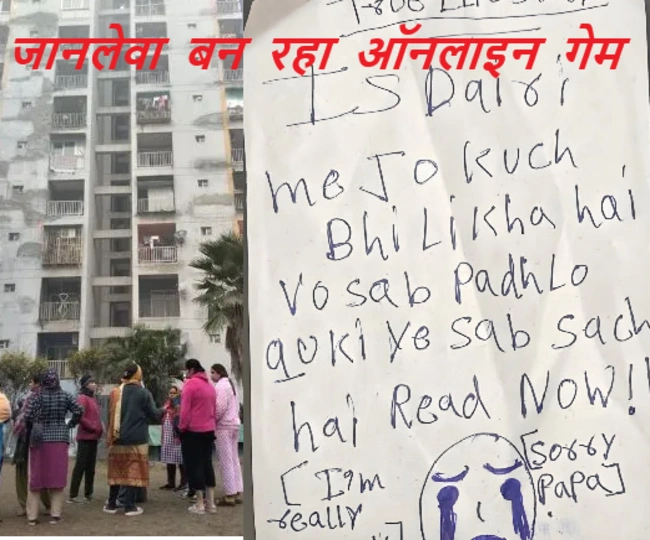 जानलेवा बन रहा ऑनलाइन गेम
IS Dairi
me Jo kuch
Bhi Likha hai
Vo sab Padhlo
quki ye sab sach
hai Read NOW!!
[Sorry
Papa]
[I'm
really